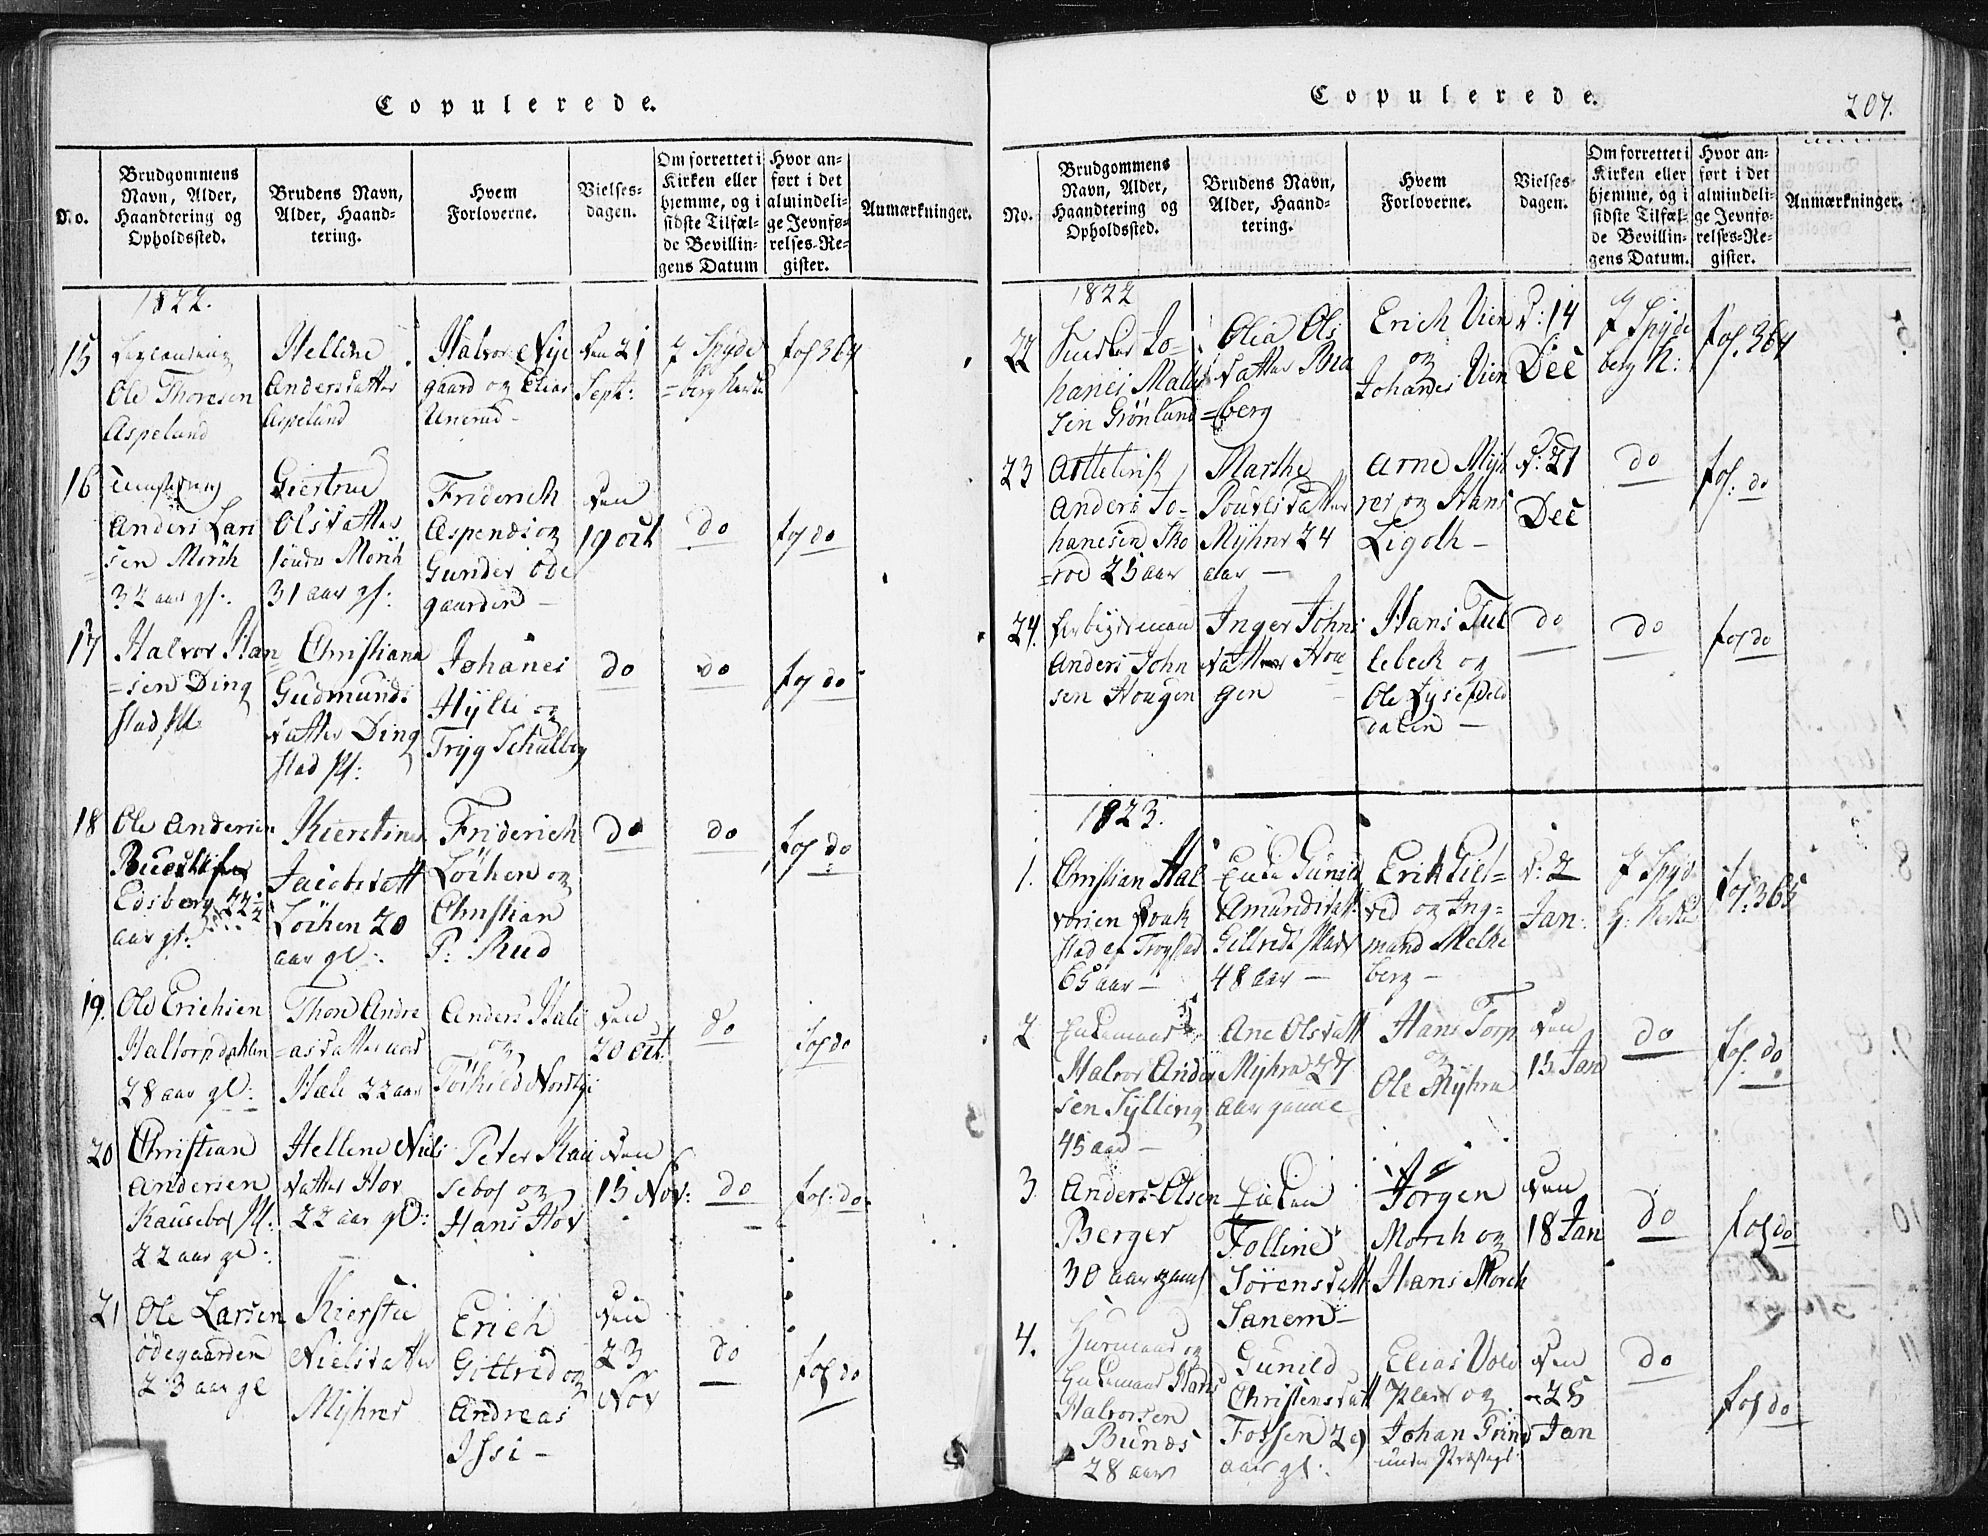 Copulerede.
No.
Brudgommens
Navn, Alder,
Haandtering og
Opholdssted.
Brudens Navn,
Alder, Haand-
tering.
Hvem
Forloverne.
Vielses-
dagen.
Om forrettet i
Kirken eller
hjemme, og i
sidste Tilfæl-
de Bevillin-
gens Datum
Hvor an-
ført i det
almindeli-
ge Jevnfø-
relses-Re-
gister.
Anmærkninger.
1822.
15
Ole Thoresen
Aspelund
Hellene
Andersdatter
Aspelund
Halvor Nye
gaard og Elias
Unerud -
den 21
Sept:
J Spyde
= berg Kirke
fol 364
16
Anders Lar
sen Mörk
32 aar gl:
Giertrue
Olsdatter
Mörk
31 aar gl:
Friderich
Aspenes og
Gunder Öde
gaarden -
den
19 oct
do
fol do
17
Halvor Han
= sen Ding
stad Pl:
Christiana
Gudmunds
datter Ding
stad Pl:
Johanes
Hylli og
Tryg Schulberg
do
do
fol do
18
Ole Andersen
Edsberg 22 1/2
aar gl:
Kierstine
Jacobsdatt
Löchen 20
aar gl:
Friderich
Löchen og
Christian
P: Rud
do
do
fol do
19.
Ole Erichsen
Haltorpdahlen
28 aar gl:
Thon Andre
= asdatter
Hæle 22 aar
Anders Hæle
og
Torkild Nordby
den
20 oct.
do
fol do
20
Christian
Andersen
Kausebol Pl:
22 aar gl:
Hellene Niels
datter Hov
22 aar gl:
Peter Kau
sebol og
Hans Hov
den
15 Nov:
do
fol: do
21
Ole Larsen
ödegaarden
23 aar gl
Kierstie
Nielsdatter
Myhrer
Erich
Gittred og
Andreas
Issi -
den
23
Nov
do
fol do
Copulerede.
207.
No.
Brudgommens
Navn, Alder,
Haandtering og
Opholdssted.
Brudens Navn,
Alder, Haand-
tering.
Hvem
Forloverne.
Vielses-
dagen.
Om forrettet i
Kirken eller
hjemme, og i
sidste Tilfæl-
de Bevillin-
gens Datum.
Hvor an-
ført i det
almindeli-
ge Jevnfø-
relses-Re-
gister.
Anmærkninger.
1822
22
Jo-
hanes Mathi
sen Grönlund
Olia Ols
datter Bra
= berg
Erich Vien
og
Johanes Vien
d: 14
Dec
J Spyde
berg K:
fol. 364
23
Anders Jo-
hanesen Sko
= rod 25 aar
Marthe
Pouelsdatter
Myhrer 24
aar -
Arne Myh
rer og Hans
Ligolh -
d: 21
Dec
do
fol: do
24.
Anders John
sen Hougen
Inger Johns
datter Hou
gen
Hans Tul
lebech og
Ole Lysefield
dalen -
do
do
fol do
1823.
1.
Christian Hal
vorsen
stad af Trygstad
65 aar -
Enke Gunild
Amundsdat:
48 aar -
Erik Giel=
red og Ing=
mand Melke
berg -
d: 2
Jan:
J Spyd
b: Kirke
fol: 365
2
Enkemand
Halvor Ander
sen Tylling
45 aar -
Ane Olsdatt
Myhra 27
aar gamle
Hans Torp
og
Ole Myhra
den
15 Jan
do
fol. do
3
Anders Olsen
Berger
30 aar gaml
Enken
Folline
Sörensdatt
Sanem -
Jörgen
Morch og
Hans Morch
den
18 Jan
do
fol do
4.
Enkemand Hans
Halvorsen
Bunæs
28 aar
Gunild
Christensdatt
Fossen 29
aar gl:
Elias Vold
Plads og
Johan Grind
under Præsteg:
den
25
Jan
do
fol do